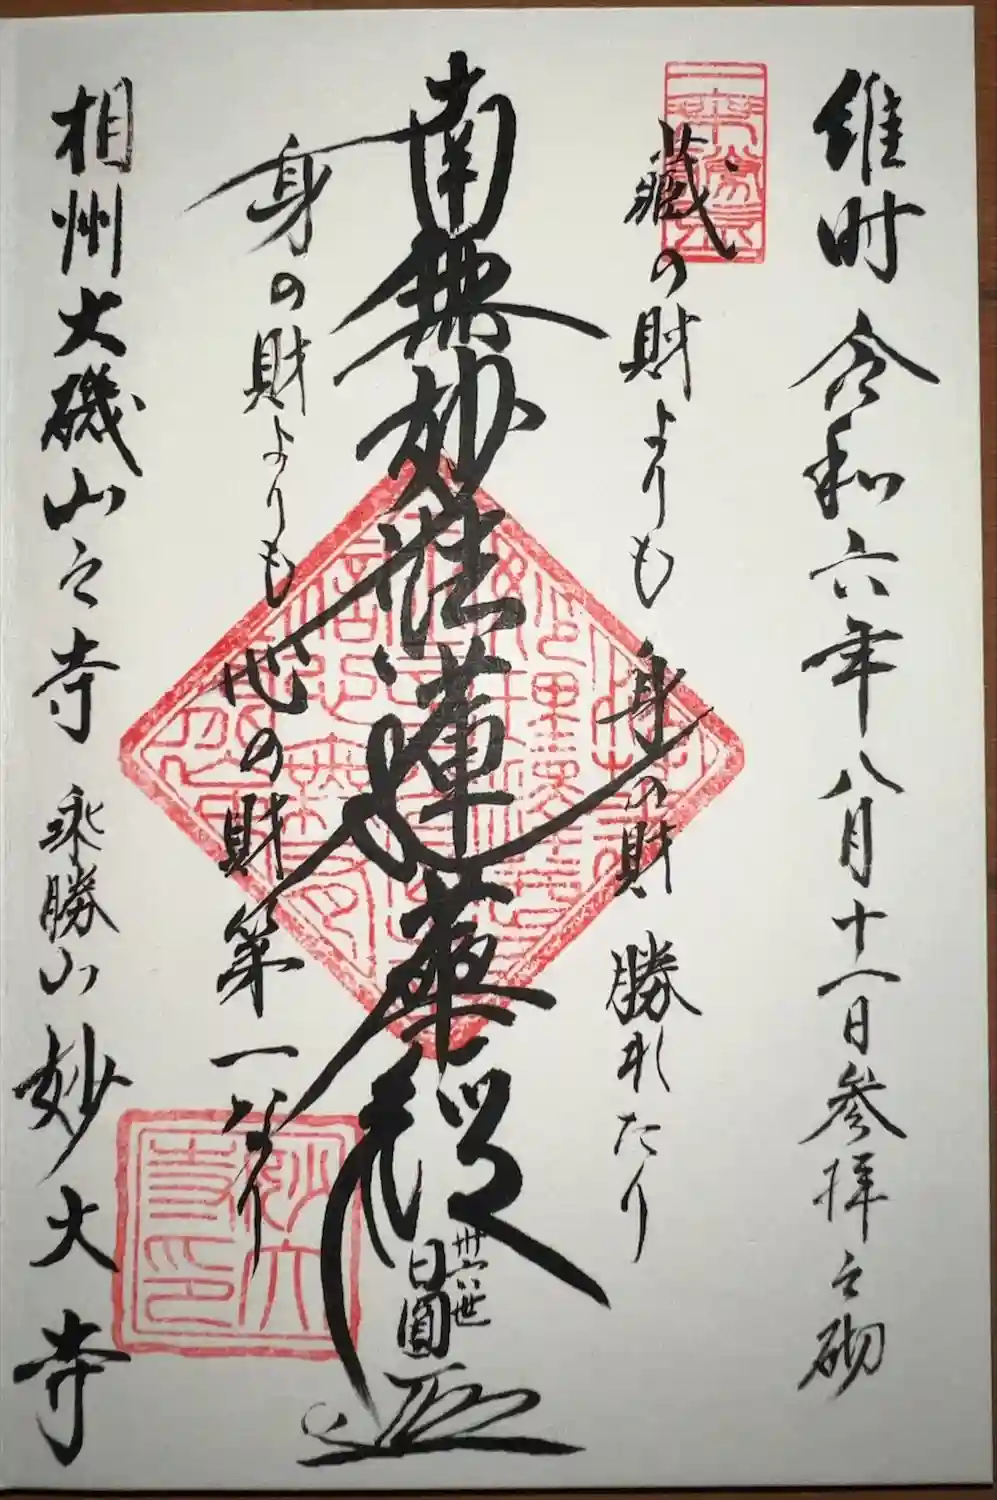 維時 令和六年八月十八日参拝之砌
蔵の財よりも 身の財 勝れたり
南無妙法蓮華経
卅六世
日圓
身の財よりも 心の財 第一なり
相州大磯山之寺 永勝山 妙大寺
妙大寺印